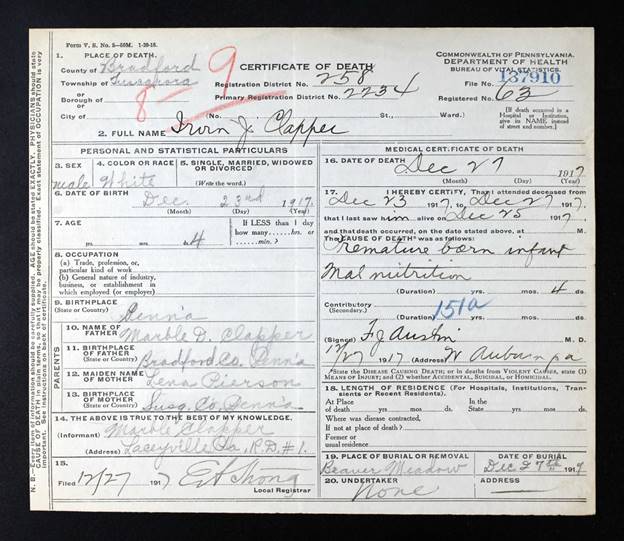 Form V. S. No. 5—50M. 1-20-15.
1. PLACE OF DEATH.
County of Bradford
Township of Tuscarora
or
Borough of
or
City of
8-9
CERTIFICATE OF DEATH
Registration District No. 258
Primary Registration District No. 2234
(No. St., Ward.)
COMMONWEALTH OF PENNSYLVANIA.
DEPARTMENT OF HEALTH
BUREAU OF VITAL STATISTICS.
137910
Registered No. 63
[If death occurred in a Hospital or Institution, give its NAME instead of street and number.]
2. FULL NAME Irvin J. Clapper
PERSONAL AND STATISTICAL PARTICULARS
3. SEX
male
4. COLOR OR RACE
White
5. SINGLE, MARRIED, WIDOWED OR DIVORCED
(Write the word.)
6. DATE OF BIRTH
Dec. 23rd 1917
(Month) (Day) (Year)
7. AGE
yrs. mos. 4
If LESS than 1 day how many......hrs. or min.?
8. OCCUPATION
(a) Trade, profession, or, particular kind of work
(b) General nature of industry, business, or establishment in which employed (or employer)
9. BIRTHPLACE
(State or Country) Penn'a
PARENTS
10. NAME OF FATHER Marble D. Clapper
11. BIRTHPLACE OF FATHER (State or Country) Bradford Co. Penn'a
12. MAIDEN NAME OF MOTHER Lena Pierson
13. BIRTHPLACE OF MOTHER (State or Country) Susq. Co. Penn'a
14. THE ABOVE IS TRUE TO THE BEST OF MY KNOWLEDGE.
(Informant) Marble Clapper
(Address) Laceyville Pa, R.D. #1.
15.
Filed 12/27 1917
Local Registrar
MEDICAL CERTIFICATE OF DEATH
16. DATE OF DEATH
Dec 27 1917
(Month) (Day) (Year)
17. I HEREBY CERTIFY, That I attended deceased from
Dec 23 1917, to Dec 27 1917.
that I last saw him alive on Dec 25 1917
and that death occurred, on the date stated above, at M.
The CAUSE OF DEATH* was as follows:
Premature born infant
Malnutrition
(Duration) yrs. mos. 4 ds.
Contributory
(Secondary)
151a
(Duration) yrs. mos. ds.
(Signed) F J Austin M. D.
12/27 1917 (Address) W Auburn pa
*State the DISEASE CAUSING DEATH; or in deaths from VIOLENT CAUSES, state (1) MEANS OF INJURY; and (2) whether ACCIDENTAL, SUICIDAL, or HOMICIDAL.
18. LENGTH OF RESIDENCE (For Hospitals, Institutions, Transients or Recent Residents).
At Place of death yrs. mos. ds. In the State yrs. mos. ds.
Where was disease contracted,
If not at place of death?
Former or usual residence
19. PLACE OF BURIAL OR REMOVAL
Beaver Meadow
DATE OF BURIAL
Dec 27th 1917
20. UNDERTAKER
None
ADDRESS